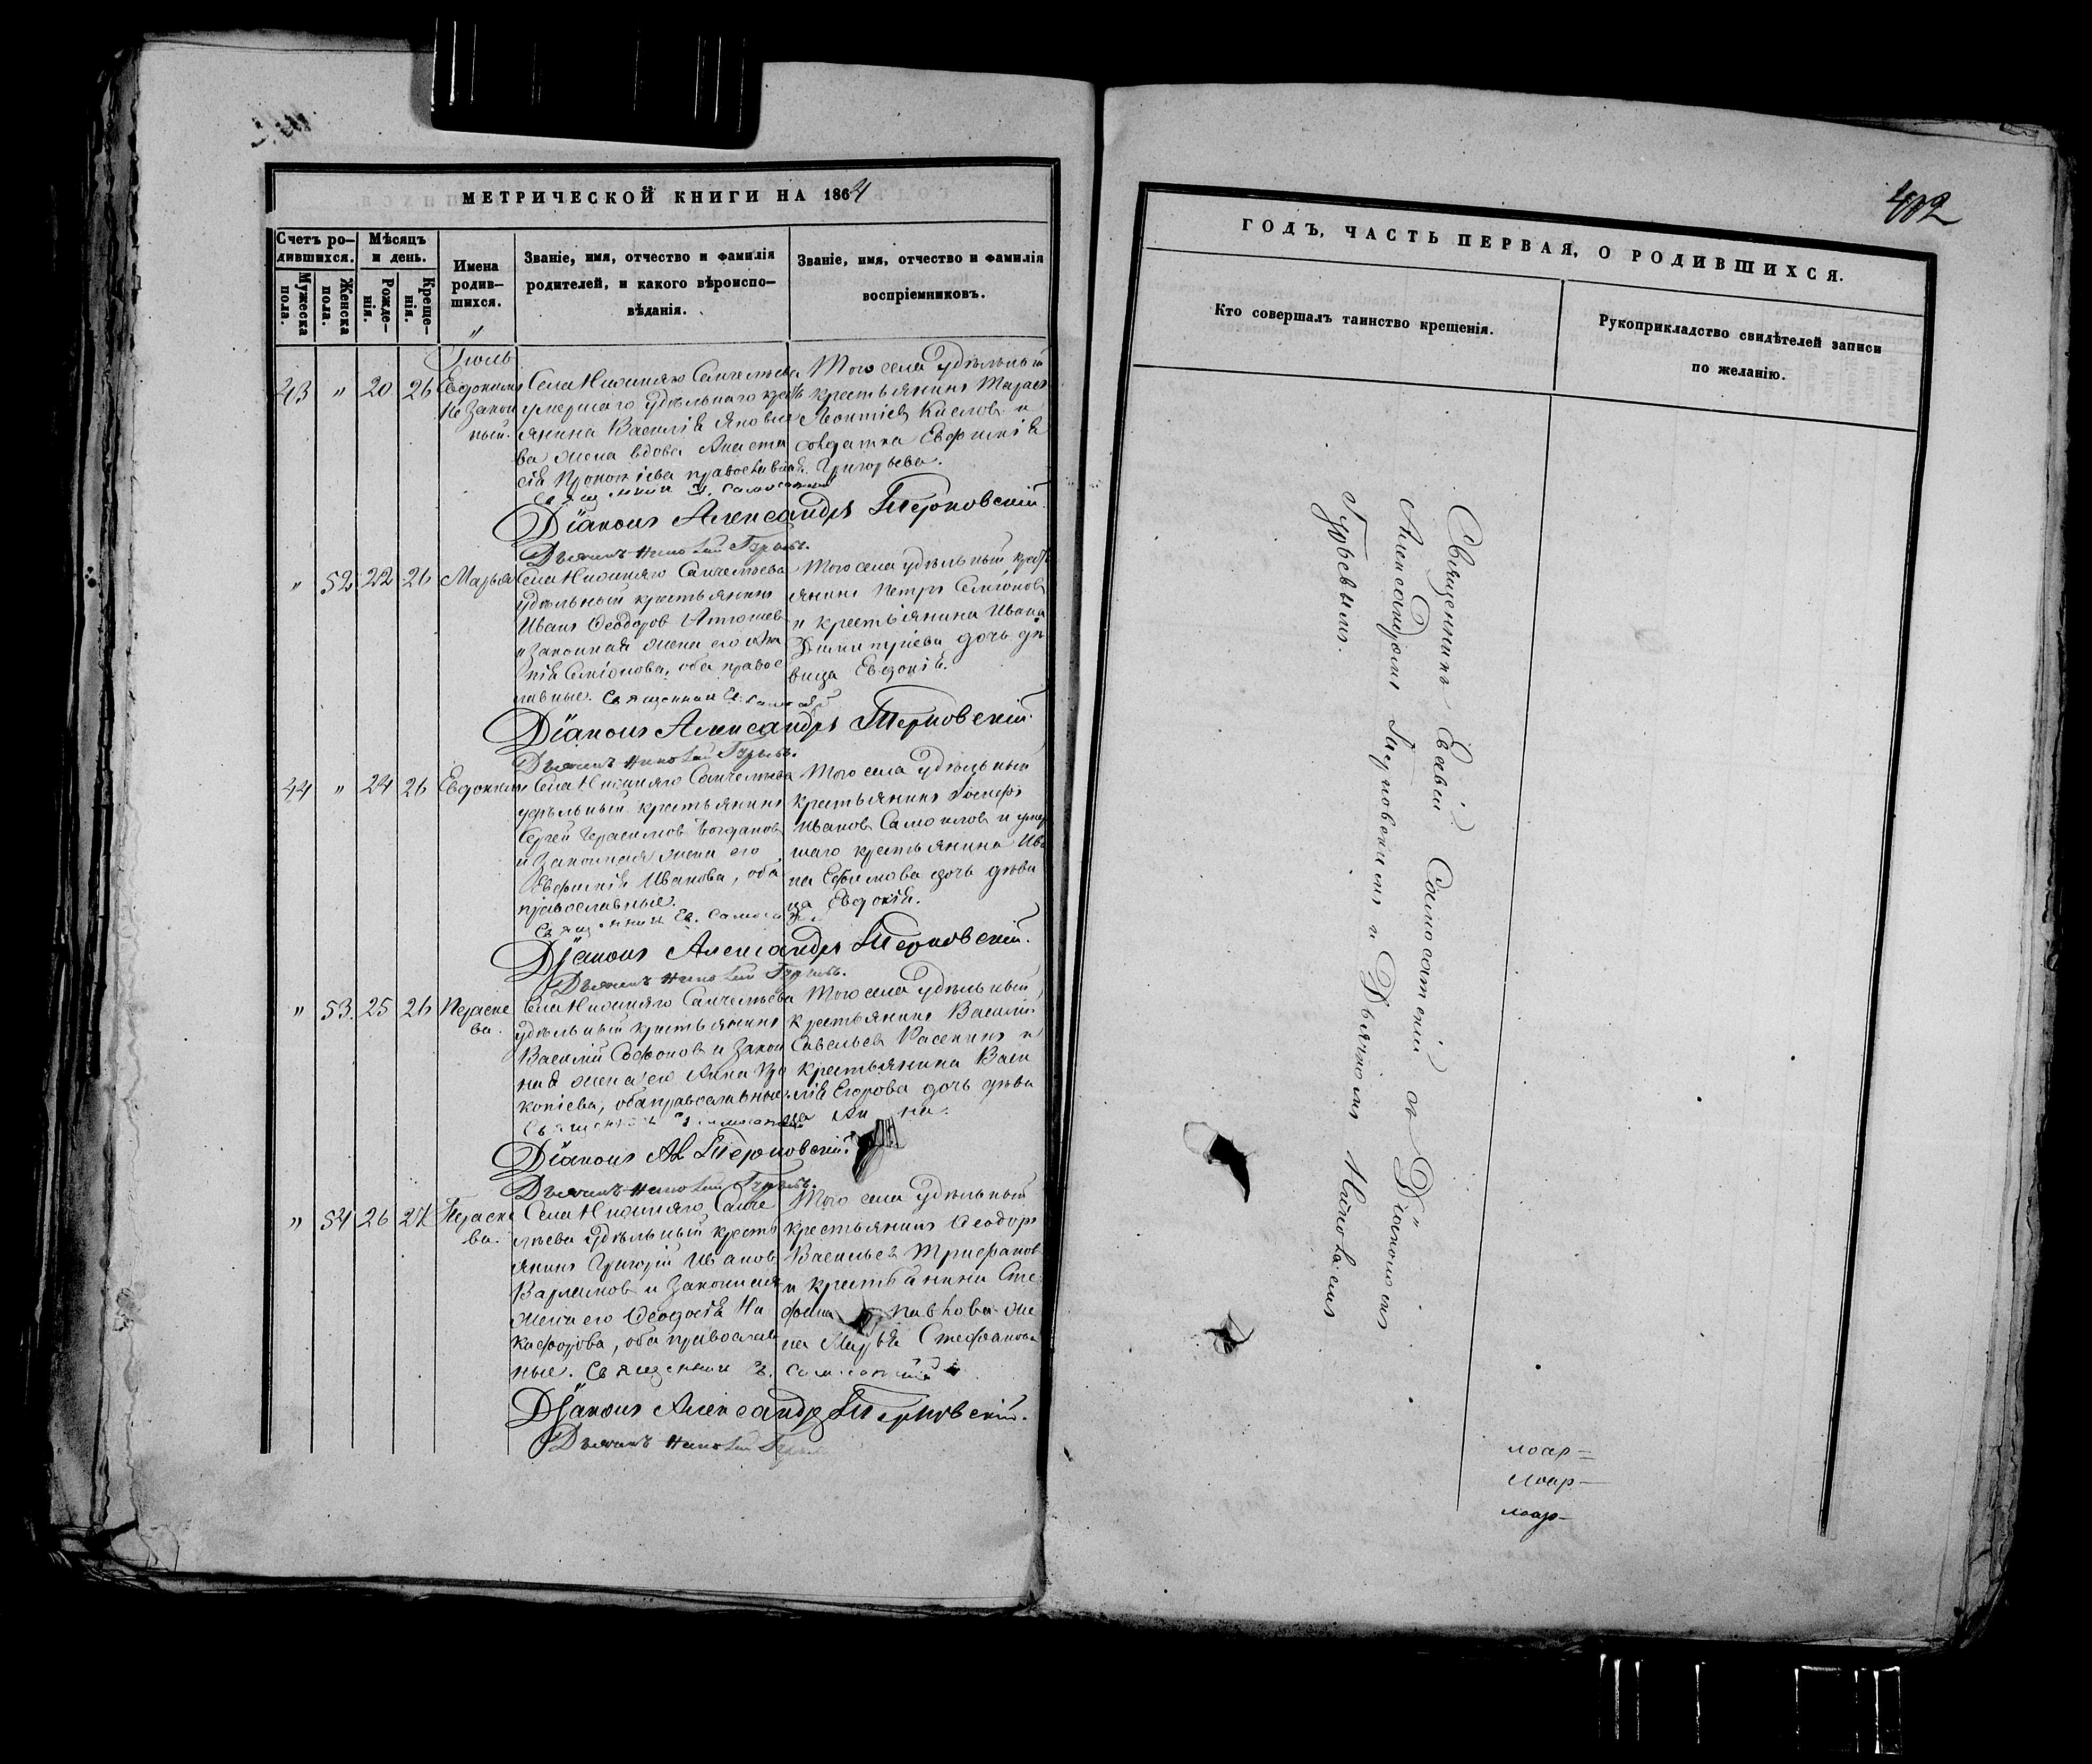 МЕТРИЧЕСКОЙ КНИГИ НА 1864
Счетъ ро-
дившихся.
Мужеска пола.
Женска пола.
Мѣсяцъ
и день.
Рожде-
нія.
Креще-
нія.
Имена
родив-
шихся.
Званіе, имя, отчество и фамилія
родителей, и какого вѣроиспо-
вѣданія.
Званіе, имя, отчество и фамилія
воспріемниковъ.
Іюль
43 " 20 26 Евдокимъ
незакон
ный.
Села Нижняго Санчелѣева
умершаго удѣльнаго кресть
янина Василія Яковле
ва жена вдова Анаста
сія Прокопіева православная.
Того села удѣльный
крестьянинъ Тарасъ
Леонтіев Кислов и
солдатка Евфимія
Григорьева.
Діаконъ Александръ Терновскій.
Дьячокъ Николай Гурьевъ.
" 52 22 26 Марья
Села Нижняго Санчелѣева
удѣльный крестьянинъ
Иванъ Ѳеодоров
и законная жена его
Семіонова, оба правос
лавные. Священникъ
Того села удѣльный крест
янинъ Петръ Семіонов
и крестьянина Ивана
Димитріева дочь дѣ
вица Евдокія.
Діаконъ Александръ Терновскій.
Дьячокъ Николай Гурьевъ.
44 " 24 26 Евдокимъ
Села Нижняго Санчелѣева
удѣльный крестьянинъ
Сергей Герасимов Богданов
и законная жена его
Евфимія Иванова, оба
православные.
Того села удѣльный
крестьянинъ Іосифъ
Иванов Самойлов и умер
шаго крестьянина Ива
на Ефимова дочь дѣви
ца Евдокія.
Діаконъ Александръ Терновскій.
Дьячокъ Николай Гурьевъ.
" 53. 25 26 Параске
ва.
Села Нижняго Санчелѣева
удѣльный крестьянинъ
Василій Софонов и закон
ная жена его Анна Про
копіева, оба православные.
Того села удѣльный
крестьянинъ Василій
Савельев Касенинъ и
крестьянина Васи
лія Егорова дочь дѣви
ца Анна.
Діаконъ Ал Терновскій.
Дьячокъ Николай Гурьевъ.
" 54 26 27 Параске
ва.
Села Нижняго Санче
лѣева удѣльный кресть
янинъ Григорій Иванов
Варламов и законная
жена его Ѳеодосія Ни
кифорова, оба православ
ные. Священникъ
Того села удѣльный
крестьянинъ Ѳеодоръ
Васильев Трифанов
и крестьянина Сте
фана Павлова же
на Марья Стефанова
Діаконъ Александръ Терновскій.
Дьячокъ Николай Гурьевъ
402
ГОДЪ, ЧАСТЬ ПЕРВАЯ, О РОДИВШИХСЯ.
Кто совершалъ таинство крещенія.
Рукоприкладство свидѣтелей записи
по желанію.
Священникъ Самосатскій съ Діакономъ
Александромъ Терновскимъ и Дьячкомъ Николаемъ
Гурьевымъ.